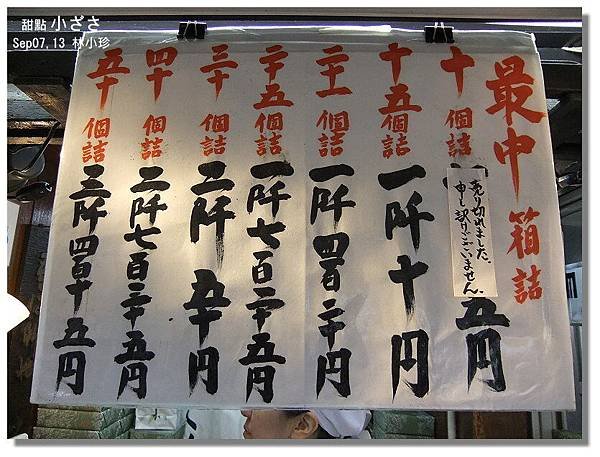 甜點 小ざさ
Sep07.13 林小珍
最中 箱詰
十個詰
五円
売り切れました。
申し訳ございません。
十五個詰 一阡十円
二十一個詰 一阡四百二十円
二十五個詰 一阡七百二十五円
三十個詰 二阡五十円
四十個詰 二阡七百二十五円
五十個詰 三阡四百十五円